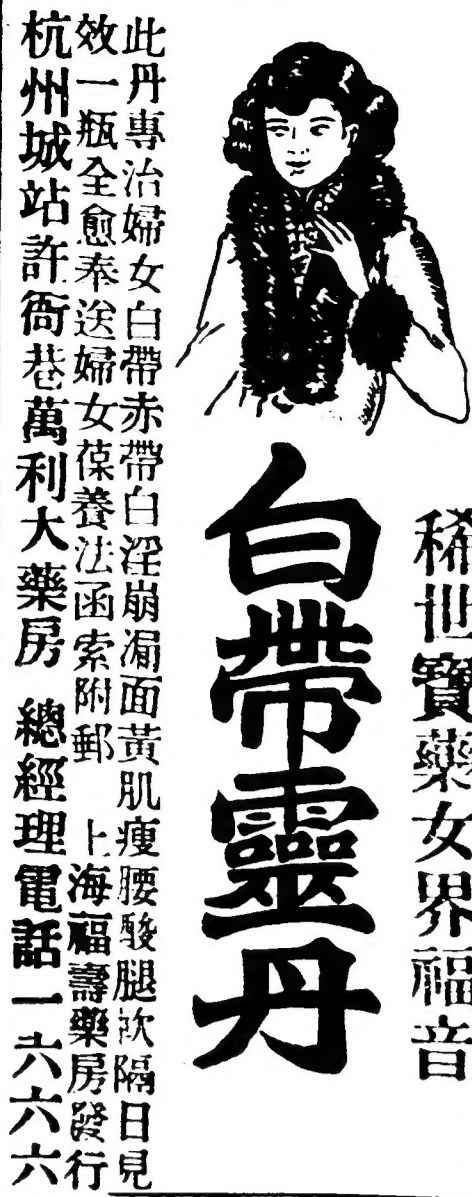 稀世寶藥女界福音
白帶靈丹
此丹專治婦女白帶赤帶白淫崩漏面黃肌瘦腰酸腿軟隔日見
效一瓶全愈奉送婦女葆養法函索附郵 上海福壽藥房發行
杭州城站許衙巷萬利大藥房 總經理電話一六六六